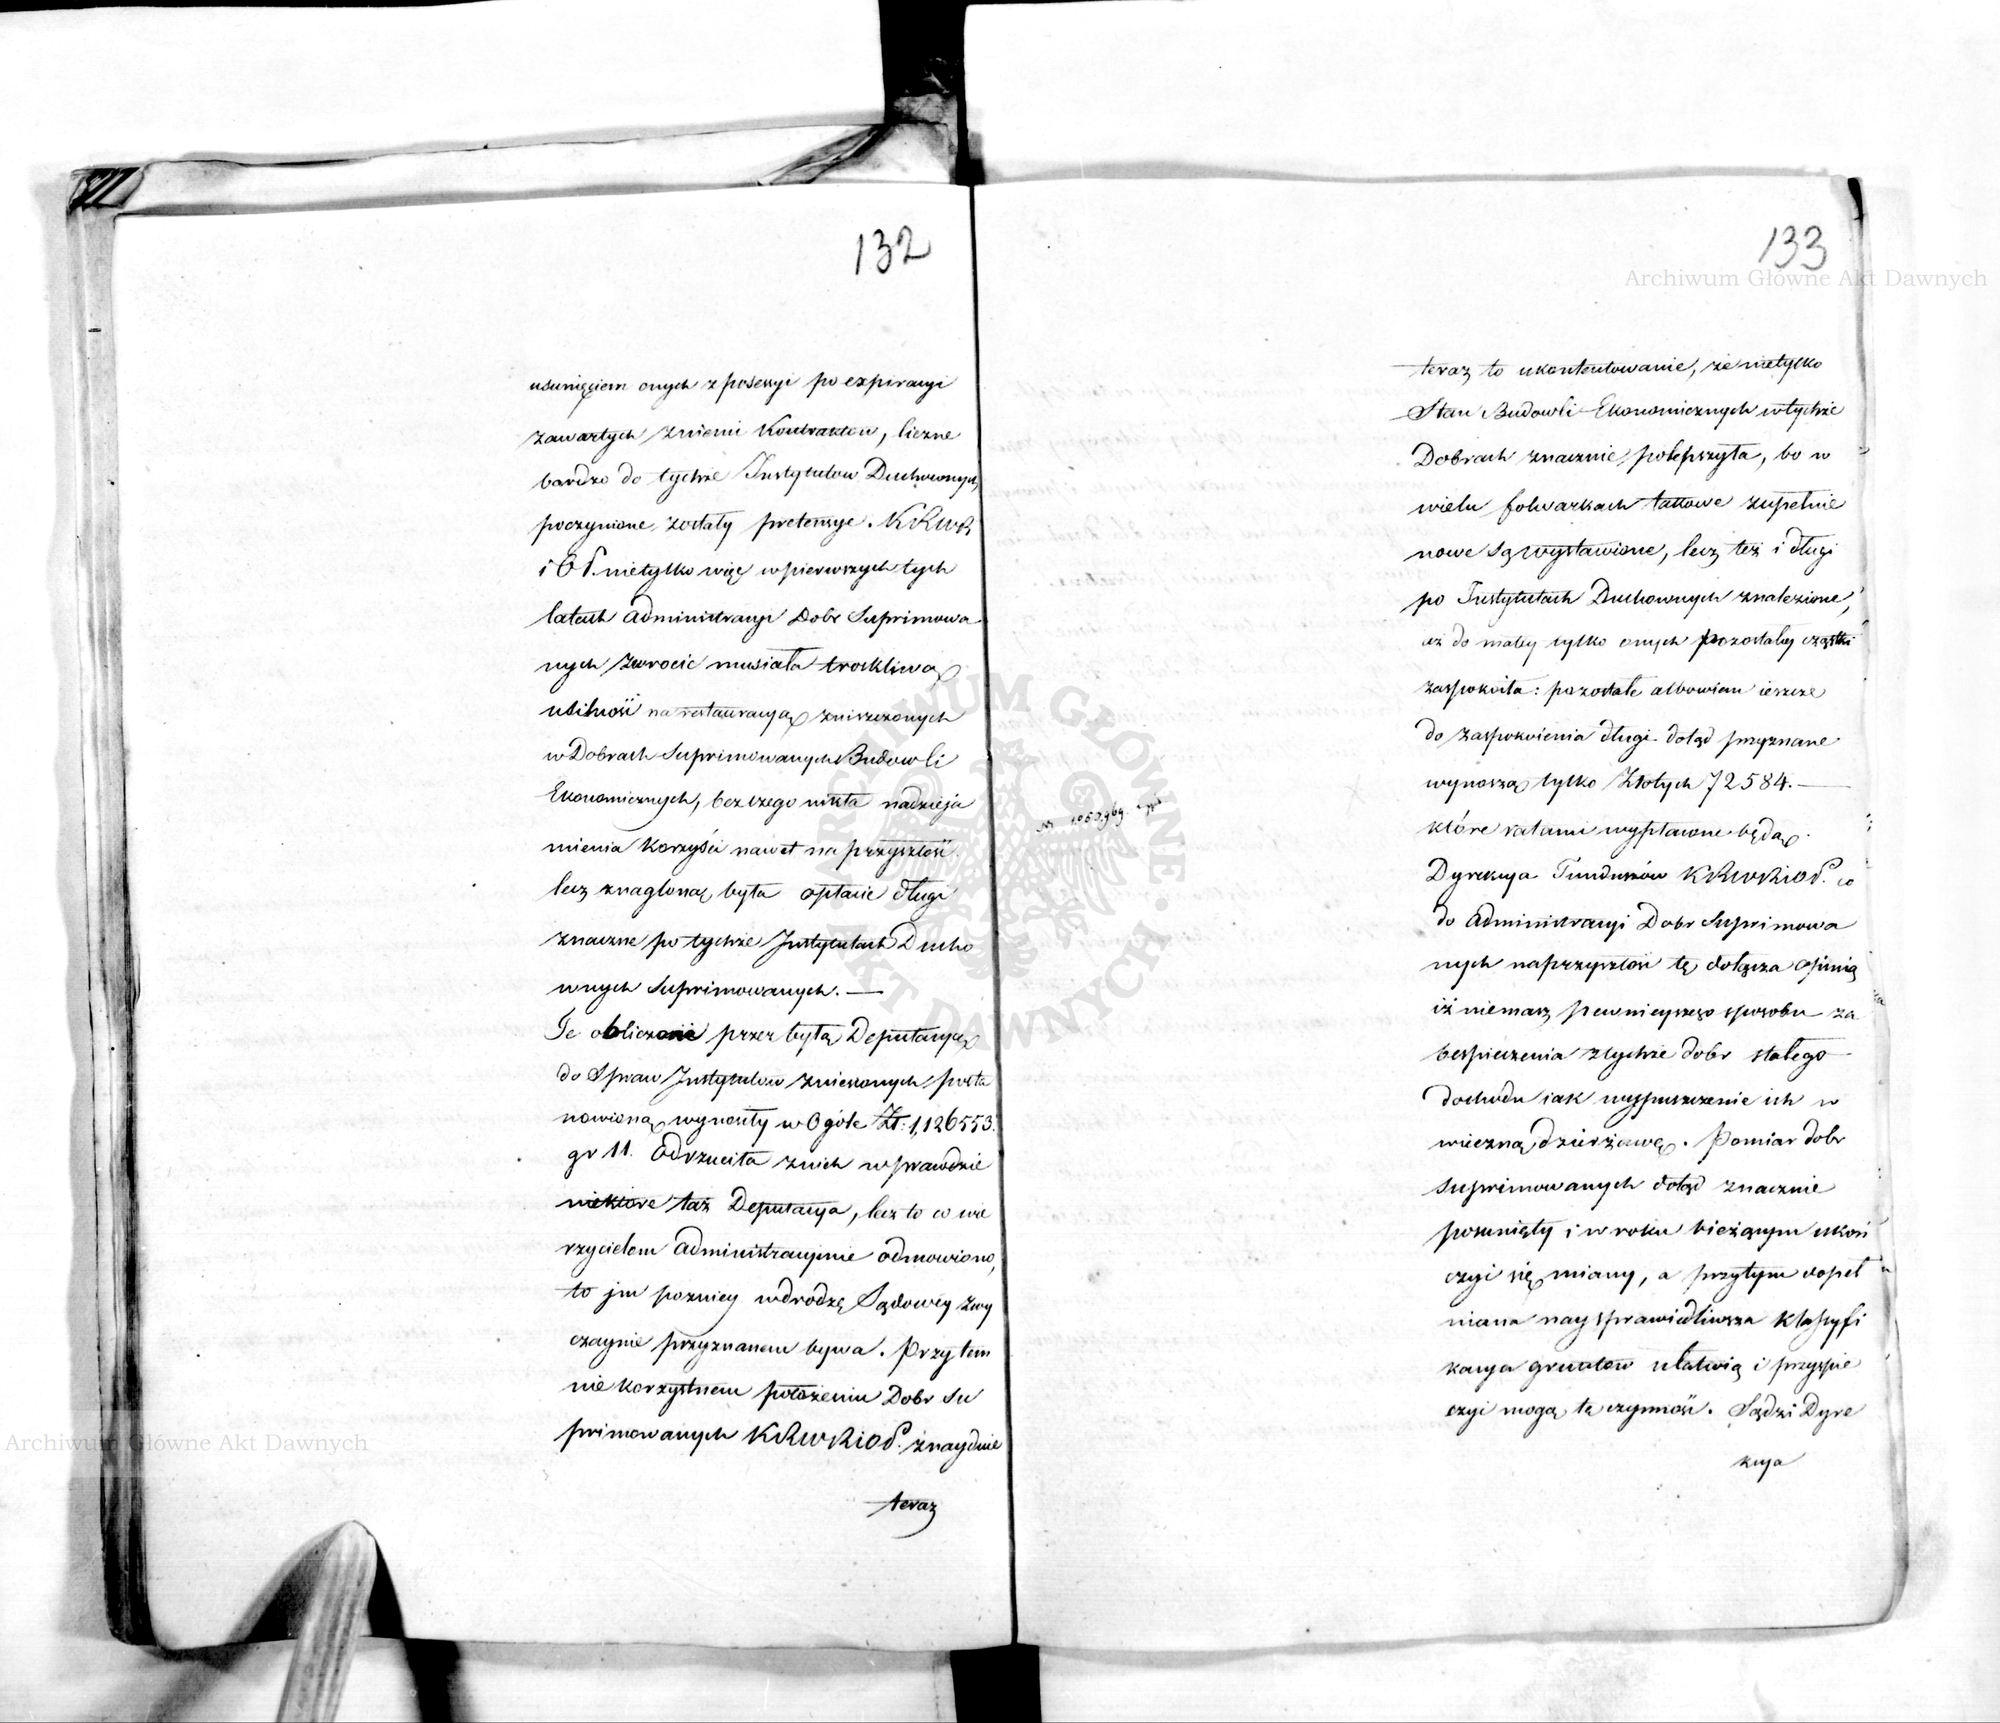 132
usunięciem onych z posessyi po expiracyi
zawartych z niemi Kontraktow, liczne
bardzo do tychże Instytutow Duchownych
poczynione zostały pretensye. KRWR
i OP. nietylko więc w pierwszych tych
latach Administracyi Dobr Suprimowa
nych zwrocić musiała troskliwą
usilność na restauracyą zniszczonych
w Dobrach Suprimowanych Budowli
Ekonomicznych, bez czego nikła nadzieja
mienia Korzyści nawet na przyszłość
lecz znagloną była opłacić długi
znaczne po tychże Instytutach Ducho
wnych Suprimowanych. —
Te obliczone przez byłą Deputacyą
do Spraw Instytutow zniesionych posta
nowioną wynosiły w Ogóle Zł: 1,126553.
gr 11. Odrzuciła z nich wprawdzie
niektóre taż Deputacya, lecz to co wie
rzycielom Administracyinie odmowiono,
to im pozniey w drodze Sądowey zwy
czaynie przyznanem bywa. Przy tem
nie korzystnem położeniu Dobr Su
primowanych KRWRiOP. znayduie
teraz
133
teraz to ukontentowanie, że nietylko
Stan Budowli Ekonomicznych w tychże
Dobrach znacznie polepszyła, bo w
wielu folwarkach takowe zupełnie
nowe są wystawione, lecz też i długi
po Instytutach Duchownych znalezione,
aż do małey tylko onych pozostałey cząstki
zaspokoiła: pozostałe albowiem ieszcze
do zaspokoienia długi dotąd przyznane
wynoszą tylko Złotych 72584. —
które ratami wypłacone będą.
Dyrekcya Funduszów KRWRiOP. co
do Administracyi Dobr Suprimowa
nych na przyszłość tę dołącza opinią
iż niemasz pewnieyszego sposobu za
bespieczenia z tychże dobr stałego
dochodu iak wypuszczenie ich w
wieczną dzierżawę. Pomiar dobr
suprimowanych dotąd znacznie
posunięty i w roku bieżącym ukoń
czyć się miany, a przytym dopeł
niana naysprawiedliwsza Klassyfi
kacya gruntow ułatwią i przyspie
szyć mogą tę czynność. Sądzi Dyre
kcya
Archiwum Główne Akt Dawnych
ARCHIWUM GŁÓWNE AKT DAWNYCH
Archiwum Główne Akt Dawnych